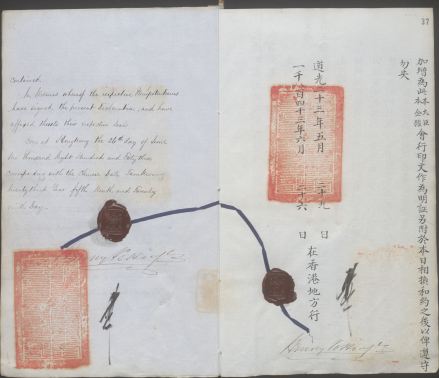 contained.
In Witness whereof the respective Plenipotentiaries
have signed the present Declaration, and have
affixed thereto their respective seals.
Done at Hongkong the 26th day of June
One Thousand Eight Hundred and Forty three
corresponding with the Chinese Date Taoukwang
Twenty third Year fifth Month and Twenty
ninth Day.
37
加增為此本大臣
本公使會行印文作為明証另附於本日相換和約之後以俾遵守
勿失
道光二十三年五月 二十九 日
一千八百四十三年六月 二十六 日
在香港地方行